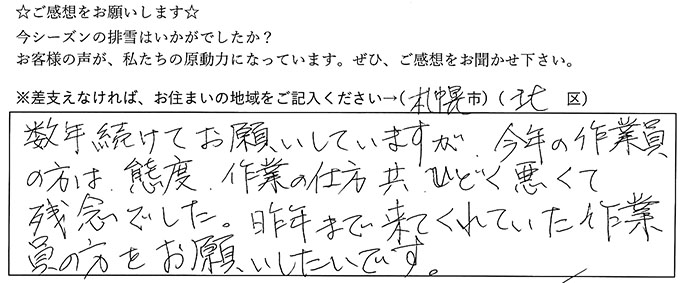 ☆ご感想をお願いします☆
今シーズンの排雪はいかがでしたか？
お客様の声が、私たちの原動力になっています。ぜひ、ご感想をお聞かせ下さい。
※差支えなければ、お住まいの地域をご記入ください→(札幌市) (北 区)
数年続けてお願いしていますが、今年の作業員
の方は、態度、作業の仕方共、ひどく悪くて
残念でした。昨年まで来てくれていた作業
員の方をお願いしたいです。